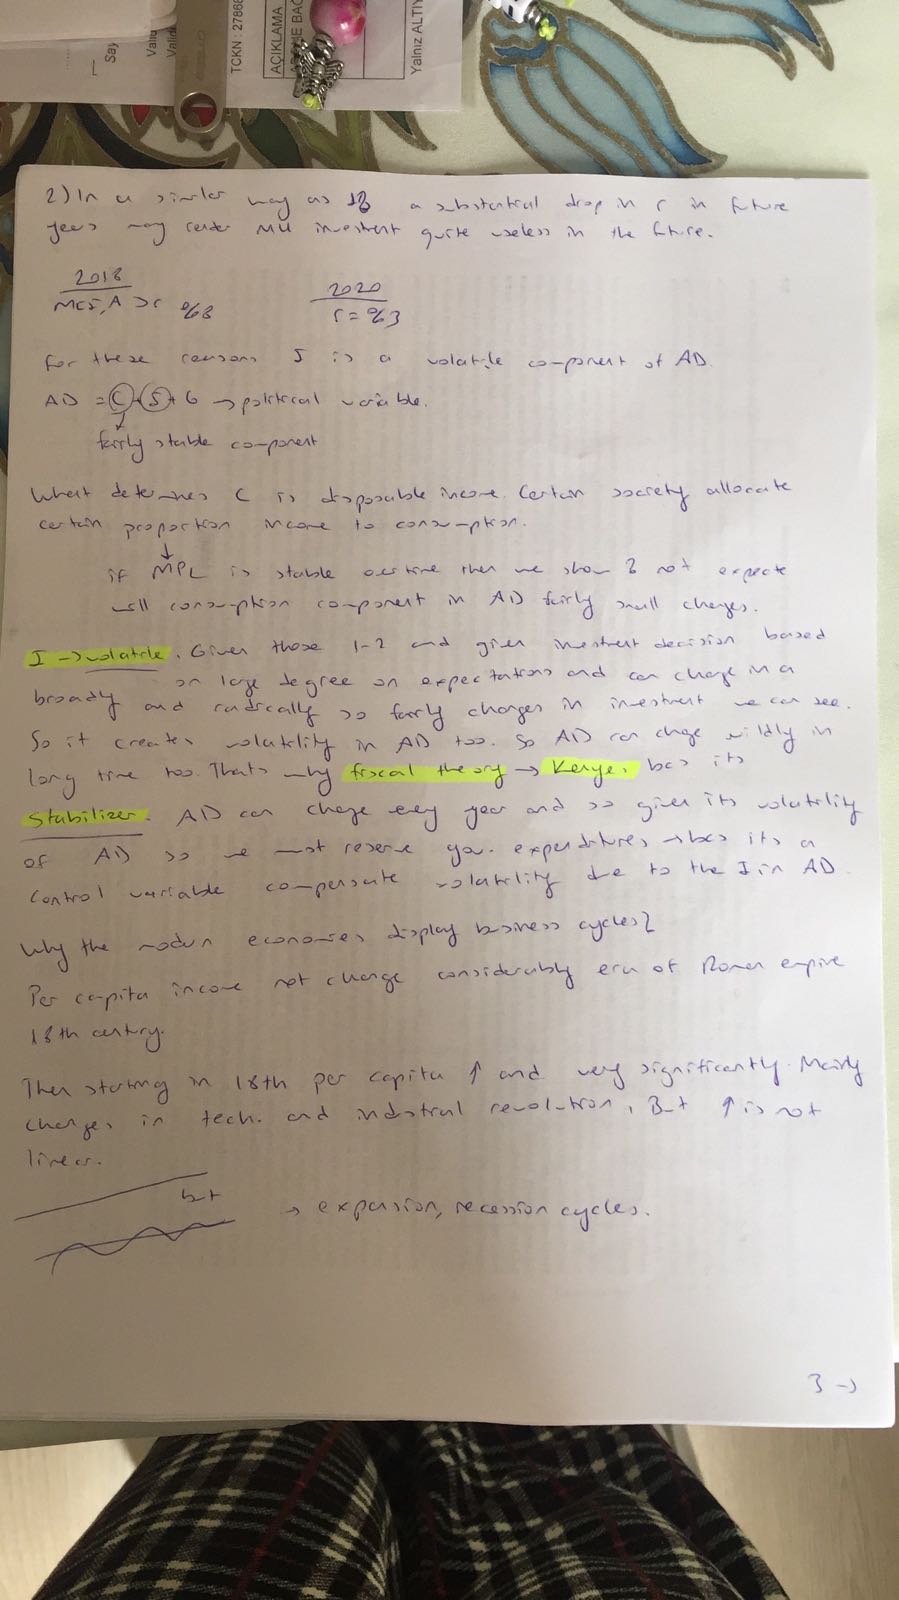 Say
Valu
Valid
TCKN : 27868
AÇIKLAMA
Yalnız ALTI
2) In a similar way as 18 a substantial drop in r in future
years may render MU investment quite useless in the future.
2018
2020
MEI, A > r %8
r = %3
For these reasons I is a volatile component of AD.
AD = C + I + G → political variable.
fairly stable component
What determines C is disposable income. Certain society allocate
certain proportion income to consumption.
if MPL is stable overtime then we should not expecte
will consumption component in AD fairly small changes.
I → volatile. Given those 1-2 and given investment decision based
on large degree on expectations and can change in a
broadly and radically so fairly changes in investment we can see.
So it creates volatility in AD too. So AD can chge wildly in
long time too. Thats why fiscal theory → Keynes bcs its
Stabilizer. AD can change every year and so given its volatility
of AD so we must reserve gov. expenditures → bcs its a
control variable compensate volatility due to the I in AD.
Why the modern economies display business cycles?
Per capita income not change considerably era of Roman empire
18th century.
Then starting in 18th per capita ↑ and very significantly. Mainly
changes in tech. and industrial revolution, But ↑ is not
linear.
but
→ expansion, recession cycles.
3 →